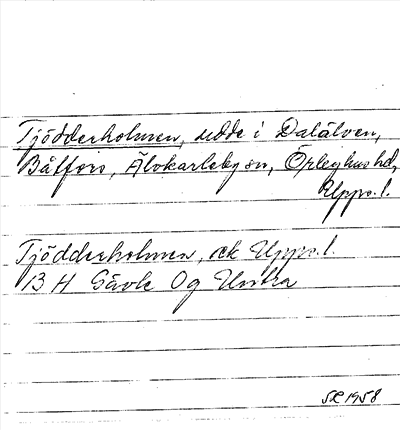 Tjödderholmen, udde i Dalälven,
Båtfors, Älvkarleby sn, Örbyhus hd,
Upps. l.
Tjödderholmen, ek Upps. l.
13 H Gävle Og Untra
1958